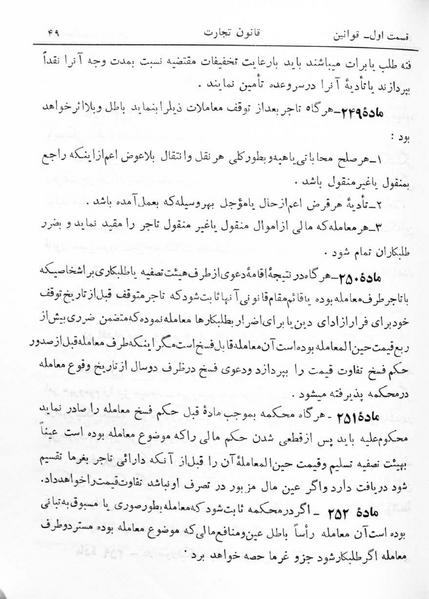 قسمت اول- قوانین قانون تجارت ۴۹
فته طلب یا برات میباشند باید بارعایت تخفیفات مقتضیه نسبت بمدت وجه آنرا نقداً
بپردازند یاتأدیۀ آنرا درسروعده تأمین نمایند .
مادۀ ۲۴۹-هرگاه تاجر بعداز توقف معاملات ذیل را بنماید باطل وبلااثر خواهد
بود :
۱-هرصلح محاباتی یاهبه وبطورکلی هر نقل وانتقال بلاعوض اعم ازاینکه راجع
بمنقول یاغیرمنقول باشد .
۲-تأدیۀ هرقرض اعم ازحال یامؤجل بهروسیله که بعمل آمده باشد .
۳-هرمعامله که مالی ازاموال منقول یاغیر منقول تاجر را مقید نماید و بضرر
طلبکاران تمام شود .
مادۀ ۲۵۰-هرگاه درنتیجۀ اقامۀ دعوی ازطرف هیئت تصفیه یاطلبکاری براشخاصیکه
باتاجرطرف معامله بوده یاقائم مقام قانونی آنها ثابت شود که تاجر متوقف قبل ازتاریخ توقف
خود برای فرار ازادای دین یابرای اضرار بطلبکارها معامله نموده که متضمن ضرری بیش از
ربع قیمت حین المعامله بوده است آن معامله قابل فسخ است مگر اینکه طرف معامله قبل ازصدور
حکم فسخ تفاوت قیمت را بپردازد ودعوی فسخ درظرف دوسال ازتاریخ وقوع معامله
درمحکمه پذیرفته میشود .
مادۀ ۲۵۱ - هرگاه محکمه بموجب مادۀ قبل حکم فسخ معامله را صادر نماید
محکوم علیه باید پس ازقطعی شدن حکم مالی راکه موضوع معامله بوده است عیناً
بهیئت تصفیه تسلیم وقیمت حین المعاملۀ آن را قبل از آنکه دارائی تاجر بغرما تقسیم
شود دریافت دارد واگر عین مال مزبور در تصرف اونباشد تفاوت قیمت راخواهدداد.
مادۀ ۲۵۲ - اگر درمحکمه ثابت شود که معامله بطورصوری یا مسبوق به تبانی
بوده است آن معامله رأساً باطل عین ومنافع مالی که موضوع معامله بوده مسترد وطرف
معامله اگر طلبکار شود جزو غرما حصه خواهد برد .